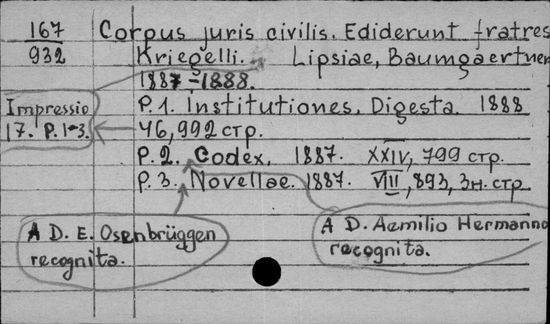 167
932
Corpus juris civilis. Ediderunt fratres
Kriegelli. Lipsiae, Baumgaertner
1887-1888.
Impressio
17. P. 1-3.
P. 1. Institutiones, Digesta. 1888
46,992 стр.
P. 2. Codex. 1887. XXIV, 799 стр.
P. 3. Novellae. 1887. VIII, 893, 3н. стр
A D. E. Osenbrüggen
recognita.
A D. Aemilio Hermanno
recognita.